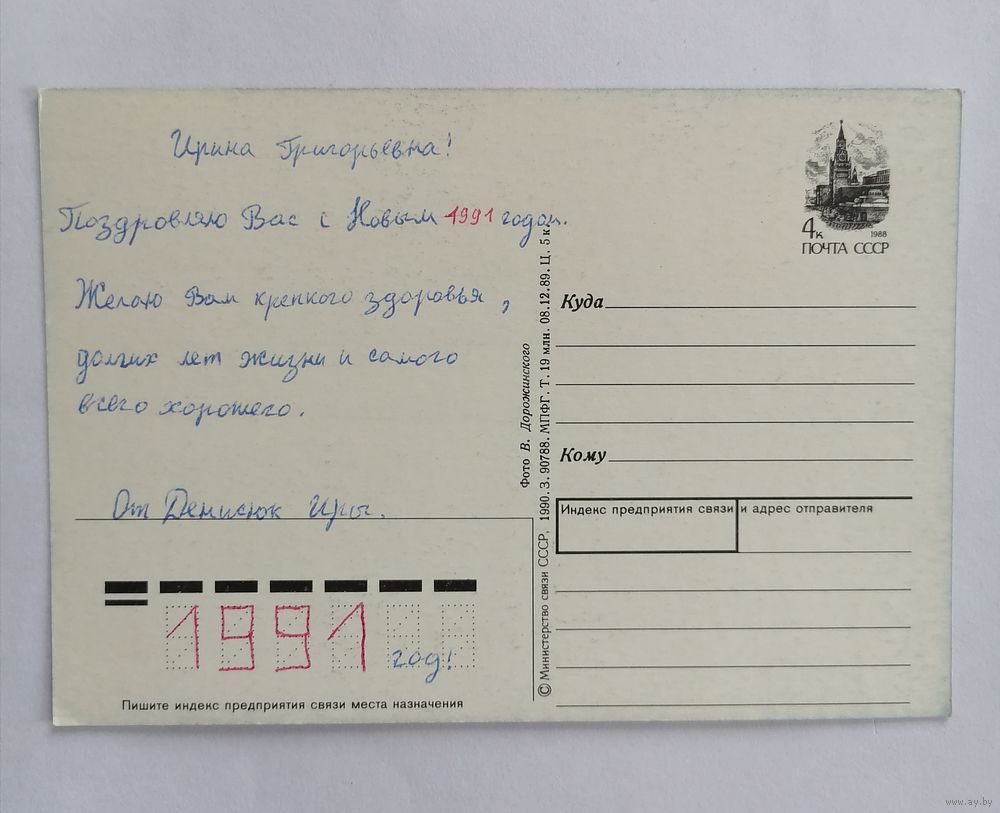 Ирина Григорьевна!
Поздровляю Вас с Новым 1991 годом.
Желаю Вам крепкого здоровья,
долгих лет жизни и самого
всего хорошего.
От Денисюк Иры.
1991 год!
Пишите индекс предприятия связи места назначения
© Министерство связи СССР, 1990. З. 90788. МПФГ. Т. 19 млн. 08.12.89. Ц. 5 к.
Фото В. Дорожинского
4к
1988
ПОЧТА СССР
Куда
Кому
Индекс предприятия связи и адрес отправителя
www.ay.by